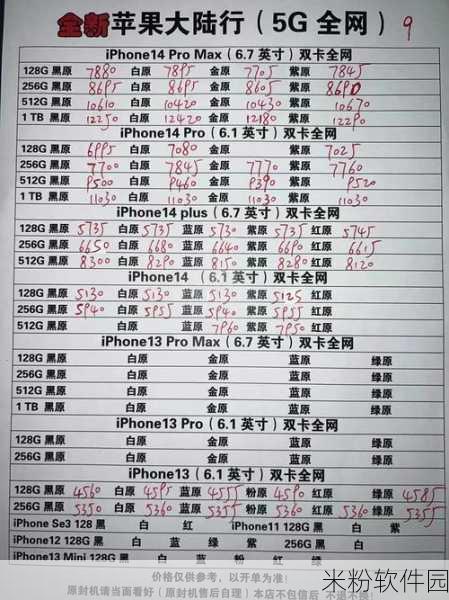 全新苹果大陆行（5G 全网） 9
iPhone14 Pro Max（6.7 英寸）双卡全网
128G 黑原 7880 白原 7895 金原 7705 紫原 7845
256G 黑原 8695 白原 8695 金原 8605 紫原
512G 黑原 10610 白原 10420 金原 10430 紫原 10670
1 TB 黑原 12250 白原 12420 金原 12180 紫原 12290
iPhone14 Pro（6.1 英寸）双卡全网
128G 黑原 6995 白原 7080 金原 紫原 7025
256G 黑原 7700 白原 7845 金原 7770 紫原 7760
512G 黑原 9500 白原 9460 金原 9390 紫原 9520
1 TB 黑原 11030 白原 11030 金原 11030 紫原 11030
iPhone14 plus（6.7 英寸）双卡全网
128G 黑原 5735 白原 5735 蓝原 5730 紫原 5735 红原 5745
256G 黑原 6650 白原 6680 蓝原 6640 紫原 6690 红原 6615
512G 黑原 8300 白原 8290 蓝原 8150 紫原 8280 红原 8120
iPhone14 （6.1 英寸）双卡全网
128G 黑原 5130 白原 5130 蓝原 5130 紫原 5125 红原
256G 黑原 5940 白原 5955 蓝原 5940 紫原 5955 红原
512G 黑原 白原 蓝原 7960 紫原 7950 红原
iPhone13 Pro Max（6.7 英寸）双卡全网
128G 黑原 白原 金原 蓝原 绿原
256G 黑原 白原 金原 蓝原 绿原
512G 黑原 白原 金原 蓝原 绿原
1 TB 黑原 白原 金原 蓝原 绿原
iPhone13 Pro（6.1 英寸）双卡全网
128G 黑原 白原 金原 蓝原 绿原
256G 黑原 白原 金原 蓝原 绿原
iPhone13（6.1 英寸）双卡全网
128G 黑原 4560 白原 4595 蓝原 4555 粉原 4590 红原 绿原 4585
256G 黑原 5350 白原 5360 蓝原 5355 粉原 5360 红原 5360 绿原 5355
iPhone Se3 128 黑 白 红 iPhone11 128G 黑 白 紫
iPhone12 128G 黑 白 蓝 绿 紫 256G 黑 白
iPhone13 Mini 128G 黑 白 蓝 粉 红 绿
价格仅供参考，以开单为准！
原封机请当面看好（原封机售后自理）本店不包信后 不退不换！
米粉软件园